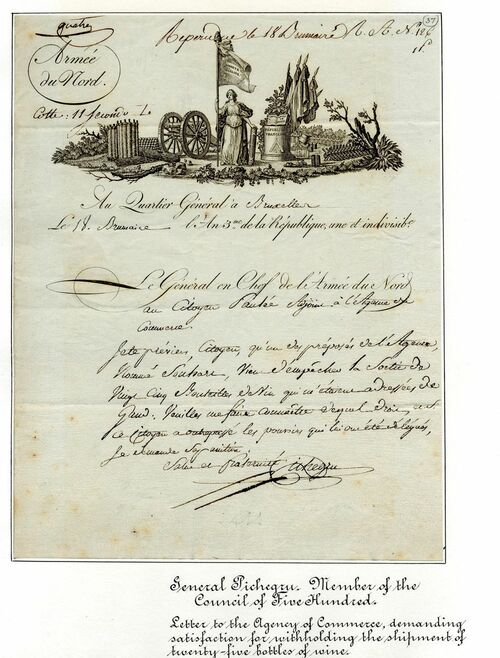 37
quatre
Repondue le 18 Brumaire R. A. N.° 126
Armée
du Nord.
Cotte: 11 second
RÉPUBLIQUE
FRANÇAISE
Au Quartier Général à Bruxelles
Le 18. Brumaire l'An 3.me de la République, une et indivisib.e
Le Général en Chef de l'Armée du Nord
au Citoyen adjoint à l'Agence de
Commerce.
Je te préviens, Citoyen, qu'un des préposés de l'Agence,
Nommé vient d'empêcher la Sortie de
Vingt Cinq Bouteilles de Vin qui m'étaient adressées de
Gand. Veuilles me faire connaitre de quel droit, et si
ce Citoyen a outrepassé les pouvoirs qui lui ont été délégués,
Je demande Sa punition.
Salut et fraternité Pichegru
General Pichegru. Member of the
Council of Five Hundred.
Letter to the Agency of Commerce, demanding
satisfaction for withholding the shipment of
twenty-five bottles of wine.